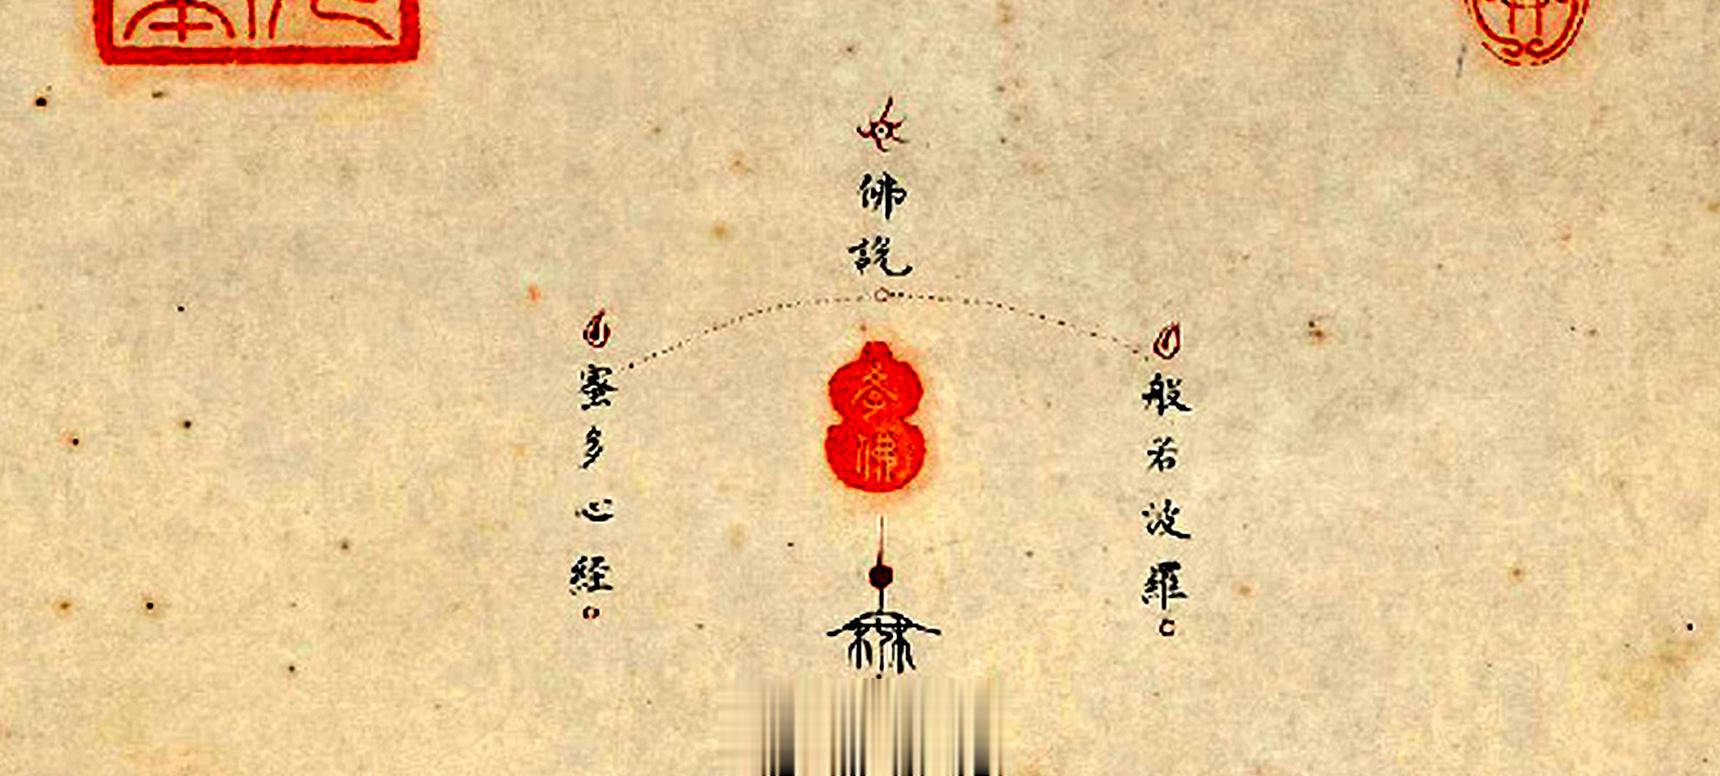 佛說
般若波羅
蜜多心経